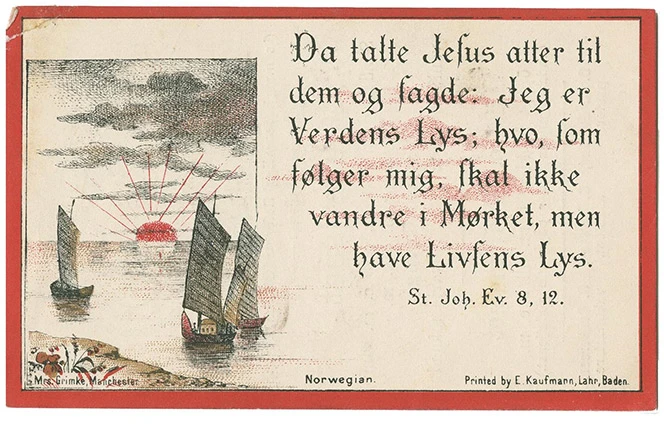 Da talte Jeſus atter til
dem og ſagde: Jeg er
Verdens Lys; hvo, ſom
følger mig, ſkal ikke
vandre i Mørket, men
have Livſens Lys.
St. Joh. Ev. 8, 12.
Mrs. Grimke, Manchester.
Norwegian.
Printed by E. Kaufmann, Lahr, Baden.